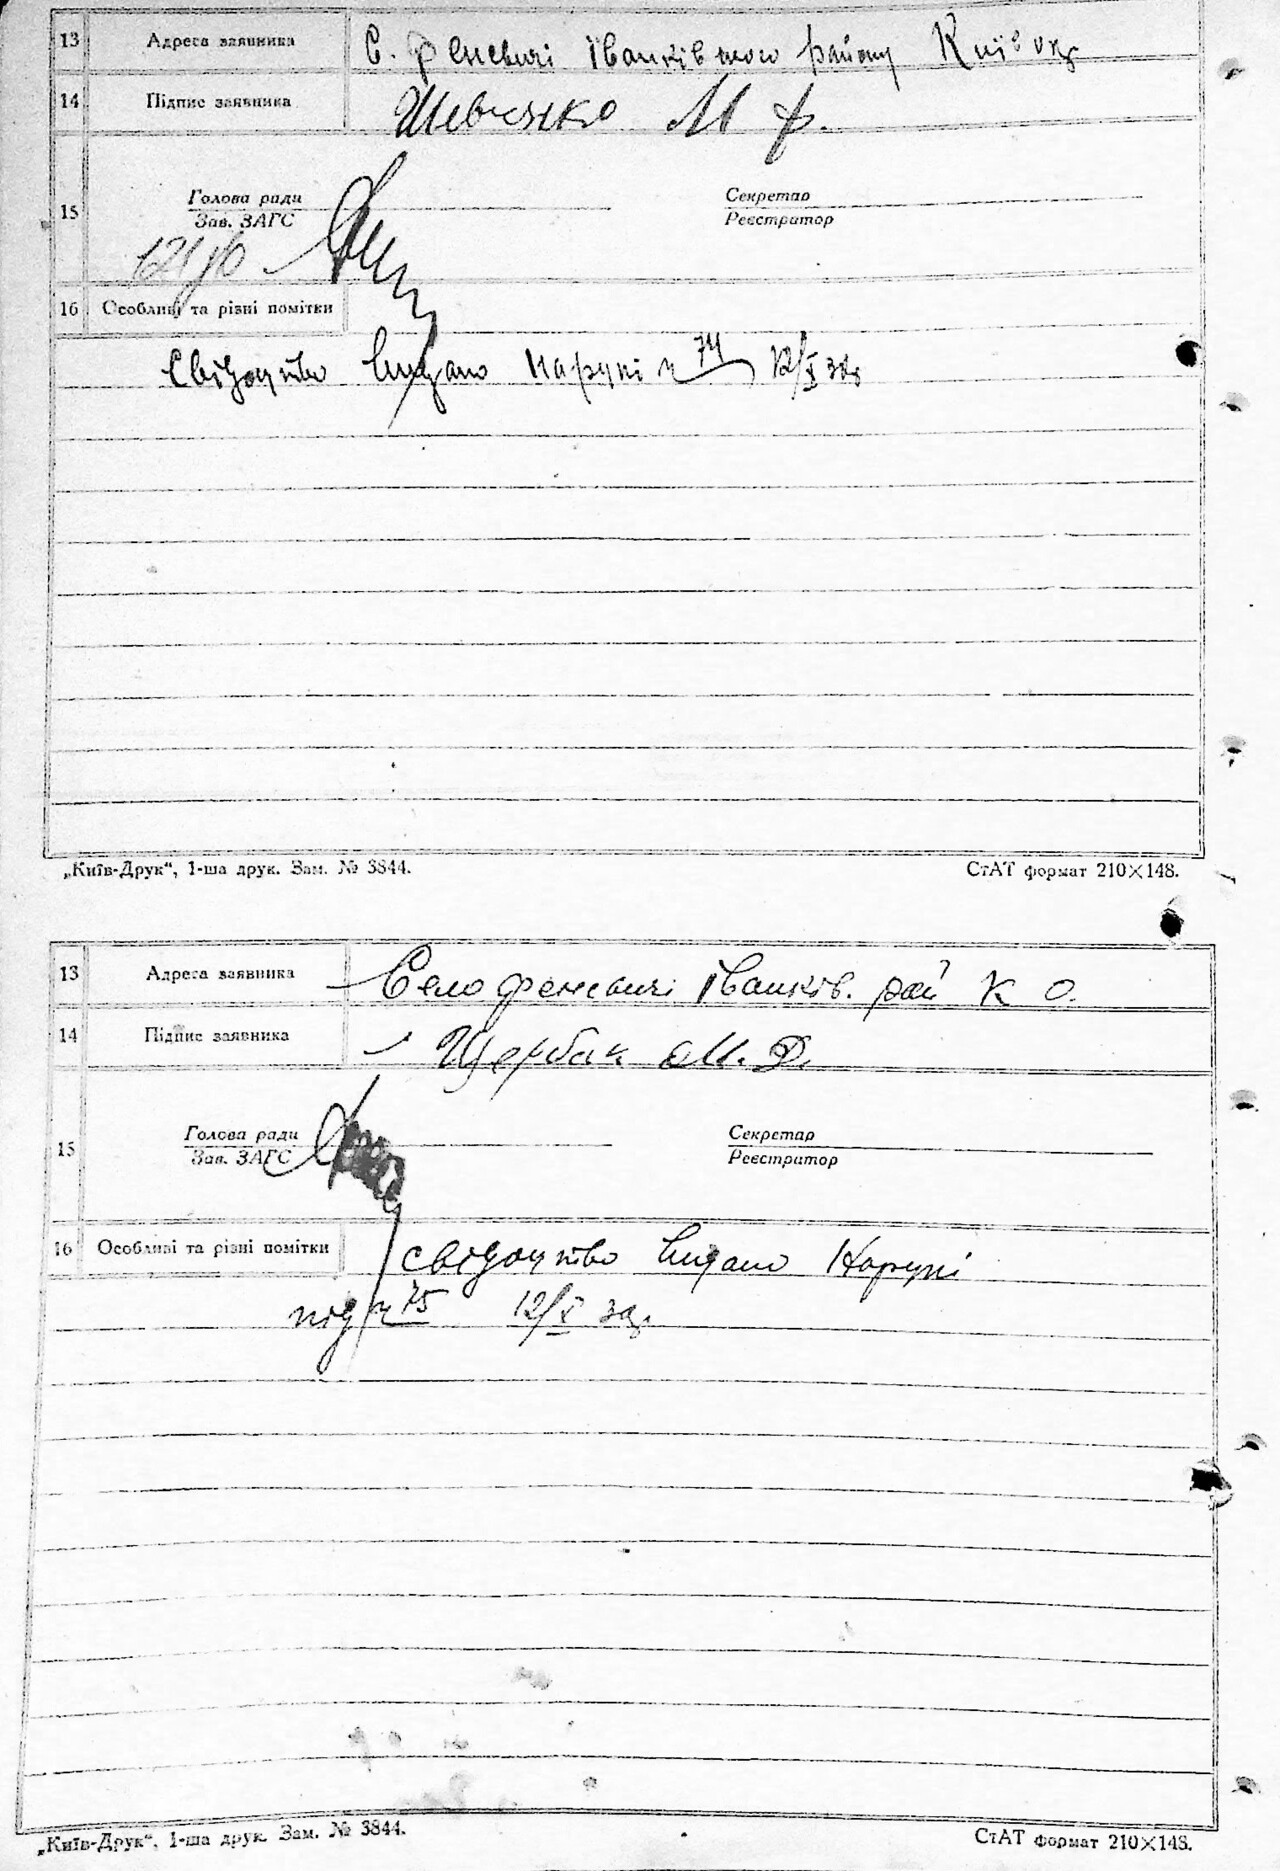 13 Адреса заявника С. Феневичі Іванківського району Київ
14 Підпис заявника Шевченко М Ф.
Голова ради Секретар
15
Зав. ЗАГС Реєстратор
16 Особливі та різні помітки
Свідоцтво видано на руки 74 12/X
„Київ-Друк“, 1-ша друк. Зам. № 3844. СтАТ формат 210×148.
13 Адреса заявника Село Феневичі Іванків. рай К О.
14 Підпис заявника Щербак М. Д.
Голова ради Секретар
15
Зав. ЗАГС Реєстратор
16 Особливі та різні помітки свідоцтво видано На руки
під 75 12/X
„Київ-Друк“, 1-ша друк. Зам. № 3844. СтАТ формат 210×148.